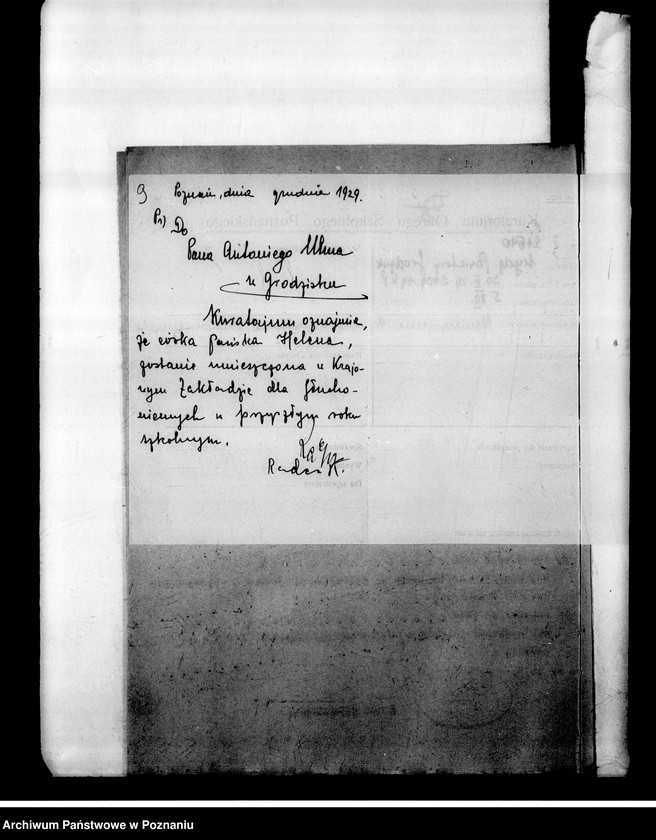 Poznań, dnia grudnia 1929.
Do
Pana Antoniego Ulma
w Grodzisku
Kuratorjum oznajmia,
że córka pańska Helena,
zostanie umieszczona w Krajo-
wym Zakładzie dla głucho-
niemych w przyszłym roku
szkolnym.
Radca
Archiwum Państwowe w Poznaniu